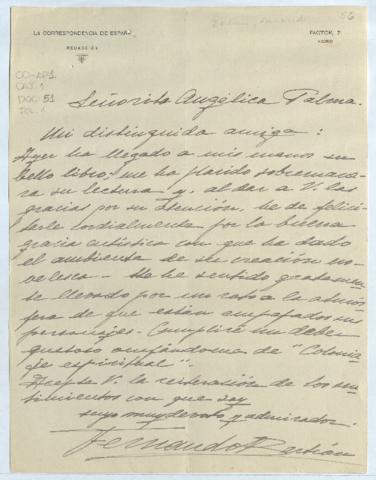 LA CORRESPONDENCIA DE ESPAÑA
REDACCIÓN
FACTOR, 7
MADRID
56
DOC 51
FOL. 1
Señorita Angélica Palma.
Mi distinguida amiga:
Ayer ha llegado a mis manos su
bello libro; me ha placido sobremane-
ra su lectura y, al dar a V. las
gracias por su atención, he de felici-
tarle cordialmente por la buena
gracia artística con que ha dado
el ambiente de su creación no-
velesca.- Me he sentido gratamen-
te llevado por un rato a la atmós-
fera de que están empapados sus
personajes.- Cumpliré un deber
gustoso ocupándome de "Colonia-
je espiritual".
Acepte V. la reiteración de los sen-
timientos con que soy
suyo muy devoto y admirador.
Fernando